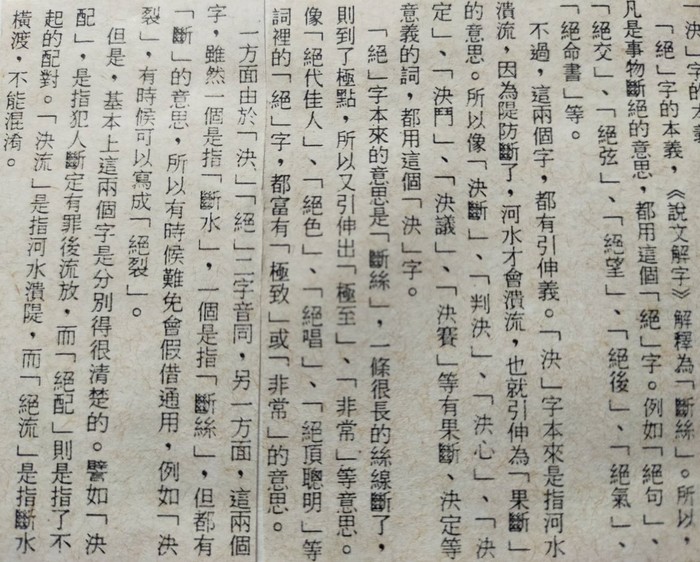 決」字的本義
「絕」字的本義，《說文解字》解釋為「斷絲」。所以，
凡是事物斷絕的意思，都用這個「絕」字。例如「絕句」、
「絕交」、「絕弦」、「絕望」、「絕後」、「絕氣」、
「絕命書」等。
不過，這兩個字，都有引伸義。「決」字本來是指河水
潰流，因為隄防斷了，河水才會潰流，也就引伸為「果斷」
的意思。所以像「決斷」、「判決」、「決心」、「決
定」、「決鬥」、「決議」、「決賽」等有果斷、決定等
意義的詞，都用這個「決」字。
「絕」字本來的意思是「斷絲」，一條很長的絲線斷了，
則到了極點，所以又引伸出「極至」、「非常」等意思。
像「絕代佳人」、「絕色」、「絕唱」、「絕頂聰明」等
詞裡的「絕」字，都富有「極致」或「非常」的意思。
一方面由於「決」「絕」二字音同，另一方面，這兩個
字，雖然一個是指「斷水」，一個是指「斷絲」，但都有
「斷」的意思，所以有時候難免會假借通用，例如「決
裂」，有時候可以寫成「絕裂」。
但是，基本上這兩個字是分別得很清楚的。譬如「決
配」，是指犯人斷定有罪後流放，而「絕配」則是指了不
起的配對。「決流」是指河水潰隄，而「絕流」是指斷水
橫渡，不能混淆。